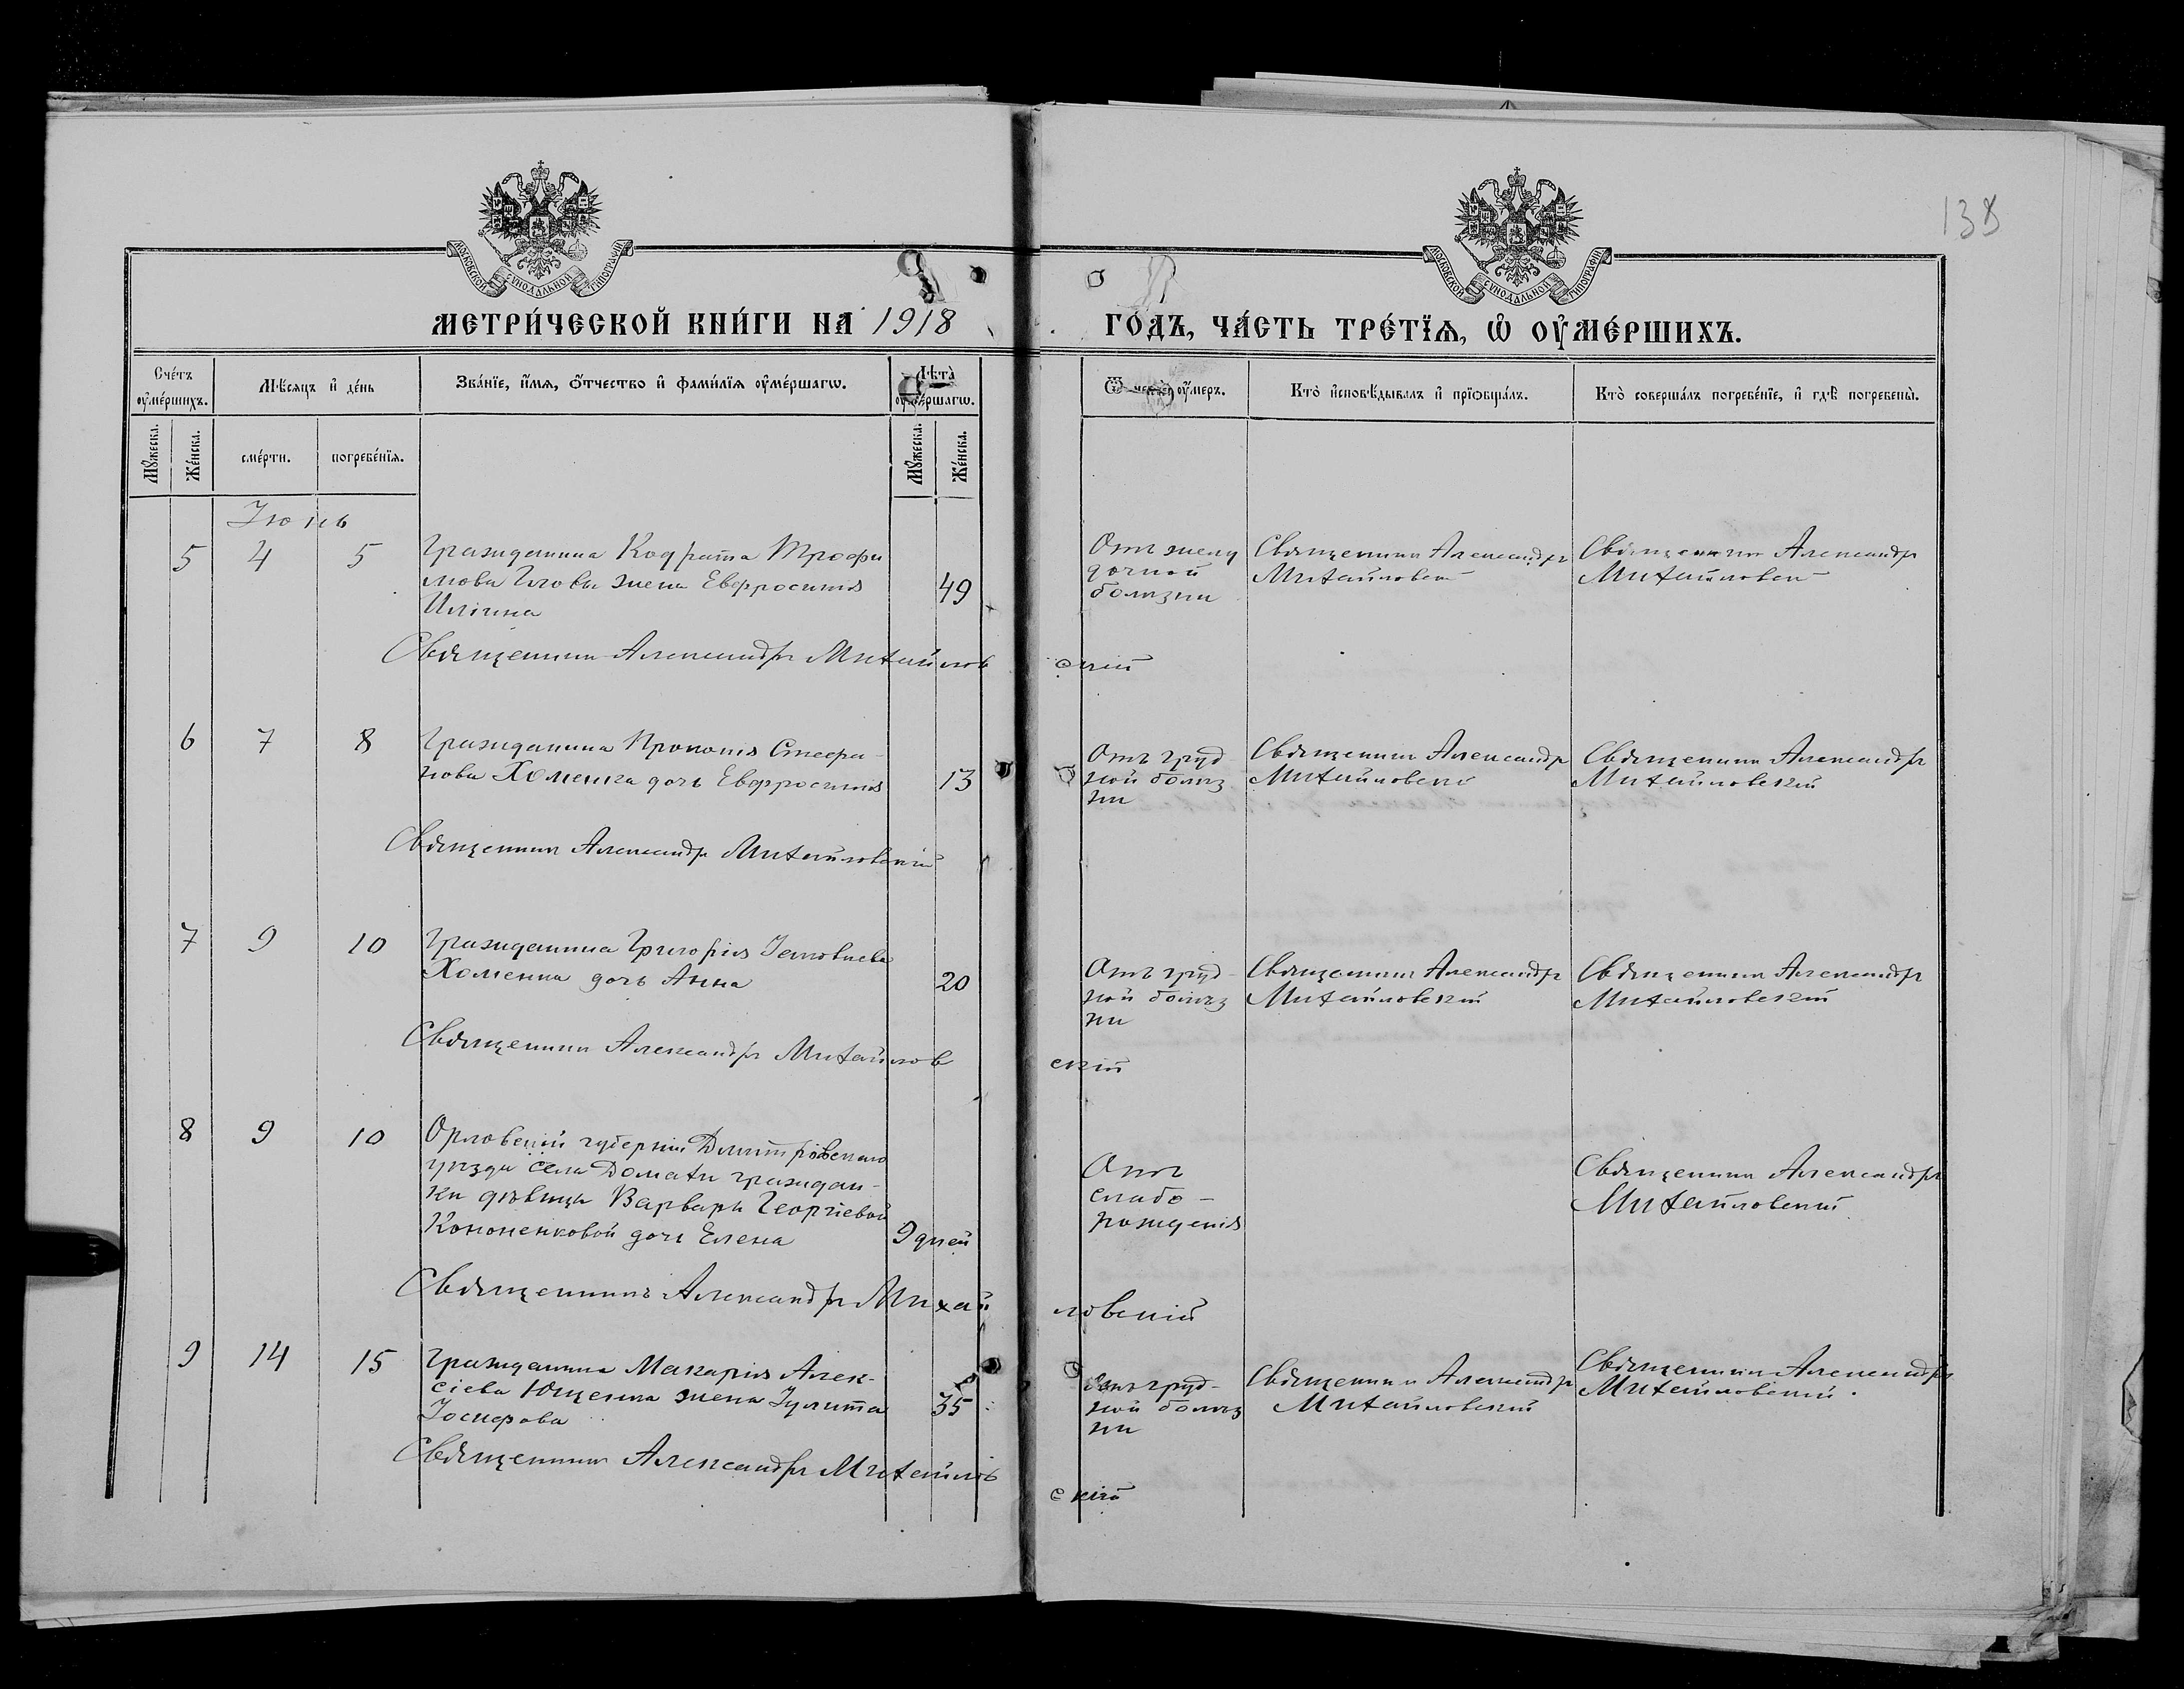 138
МОСКОВСКОЙ СѴНОДАЛЬНОЙ ТИПОГРАФІИ
МОСКОВСКОЙ СѴНОДАЛЬНОЙ ТИПОГРАФІИ
МЕТРИ́ЧЕСКОЙ КНИ́ГИ НА 1918 ГО́ДЪ, ЧА́СТЬ ТРЕ́ТЇѦ, Ѡ҆ ОУ҆МЕ́РШИХЪ.
Сче́тъ оу҆ме́ршихъ.
Мѣ́сяцъ и҆ де́нь
Зва́нїе, и҆́мѧ, ѻ҆́тчество и҆ фами́лїѧ оу҆ме́ршагѡ.
Лѣ́та оу҆ме́ршагѡ.
Ѿ чегѡ̀ оу҆́меръ.
Кто̀ и҆сповѣ́дывалъ и҆ прїѡбща́лъ.
Кто̀ соверша́лъ погребе́нїе, и҆ гдѣ̀ погребены̀.
Мꙋ́жеска.
Же́нска.
сме́рти.
погребе́нїѧ.
Мꙋ́жеска.
Же́нска.
Іюнь
5 4 5 Гражданина Кодрата Трофи
мова жена Евфросинія 49
Иліина
Отъ желу
дочной
болѣзни
Священникъ Александръ
Михайловскій
Священникъ Александръ
Михайловскій
Священникъ Александръ Михайлов
скій
6 7 8 Гражданина Прокопія Стефа-
нова Хоменка дочь Евфросинія 13
Отъ груд
ной болѣз
ни
Священникъ Александръ
Михайловскій
Священникъ Александръ
Михайловскій
Священникъ Александръ Михайловскій
7 9 10 Гражданина Григорія Іаковлева
Хоменка дочь Анна 20
Отъ груд-
ной болѣз
ни
Священникъ Александръ
Михайловскій
Священникъ Александръ
Михайловскій
Священникъ Александръ Михайлов
скій
8 9 10 Орловской губерніи Дмитровскаго
уѣзда села Домахи граждан-
ки дѣвицы Варвары Георгіевой
Кононенковой дочь Елена 9 дней
Отъ
слабо-
рожденія
Священникъ Александръ
Михайловскій
Священникъ Александръ Михай
ловскій
9 14 15 Гражданина Макарія Алек-
сіева Ющенка жена Іулитта 35
Іосифова
Отъ груд-
ной болѣз
ни
Священникъ Александръ
Михайловскій
Священникъ Александръ
Михайловскій.
Священникъ Александръ Михайлов
скій